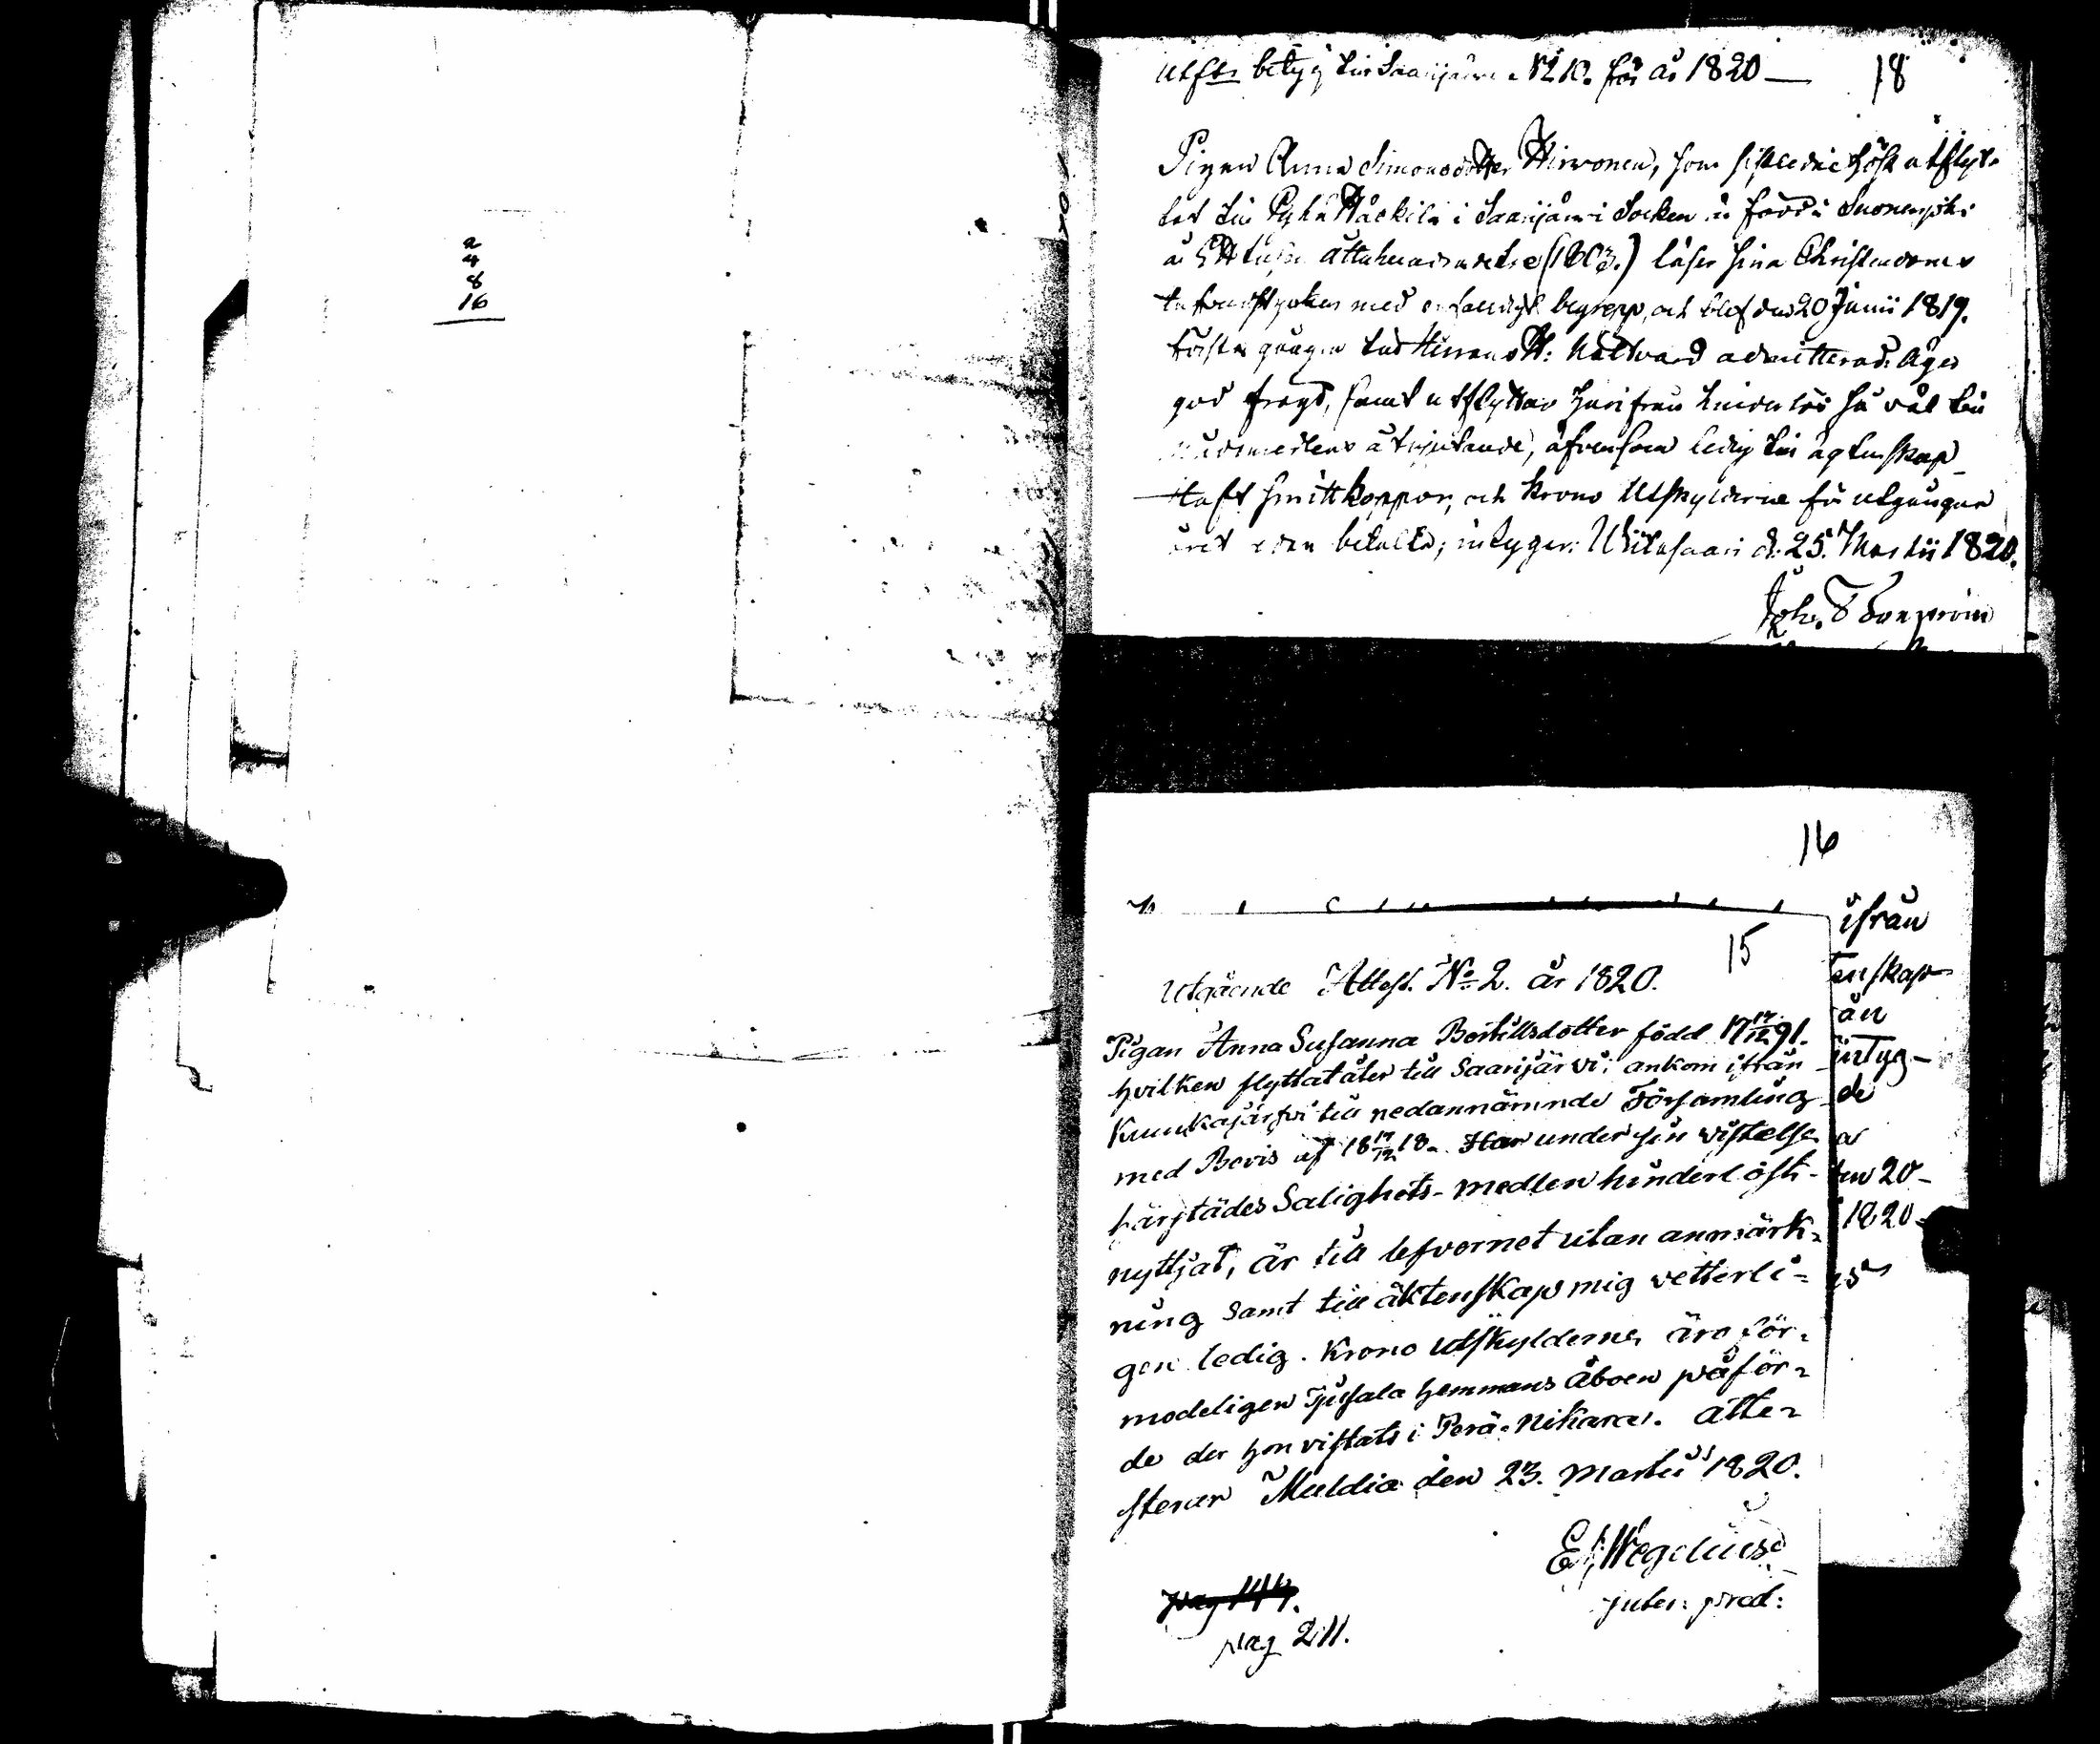 2
4
8
16
Utfl. betyg till Saarijärvi N:o 10. för år 1820 —
18
Pigan Anna Simonsdotter Hirvonen, som sistledne höst utflyt-
tat till Pyhä Häckilä i Saarijärvi Socken är född i Suonenjoki
år Ett tusen åttahundradetre (1803.) läser sina Christendoms
med begrepp, och blef den 20 Junii 1819.
första gången till Herrans H: Nattvard admitterad. Äger
god fregd, samt utflyttar härifrån hinderlös så väl till
nådemedlens åtnjutande, äfvensom ledig till ägtenskap
Haft Smittkoppor, och Krono Utskylderne för utgångne
året äro betalte; intygar: Wiitasaari d. 25. Martii 1820.
Joh.
16
ifrån
tenskap
än
intyg-
de
den 20-
1820-
15
Utgående Attest. No 2. år 1820.
Pigan Anna Susanna Bertillsdotter född 17 17/12 91.
hvilken flyttat åter till Saarijärvi, ankom ifrån
till nedannämnde Församling
med Bevis af 18 17/12 18. Har under sin vistelse
härstädes Salighets-medlen hinderlöst
nyttjat, är till lefvernet utan anmärk-
ning samt till äktenskap mig vetterli-
gen ledig. Krono utskylderne äro för-
modeligen hemmans åboen påför-
de der hon vistats i Perä-Nikara. Atte-
sterar Muldia den 23. Martii 1820.
E. J. Wegelius
pag 211.